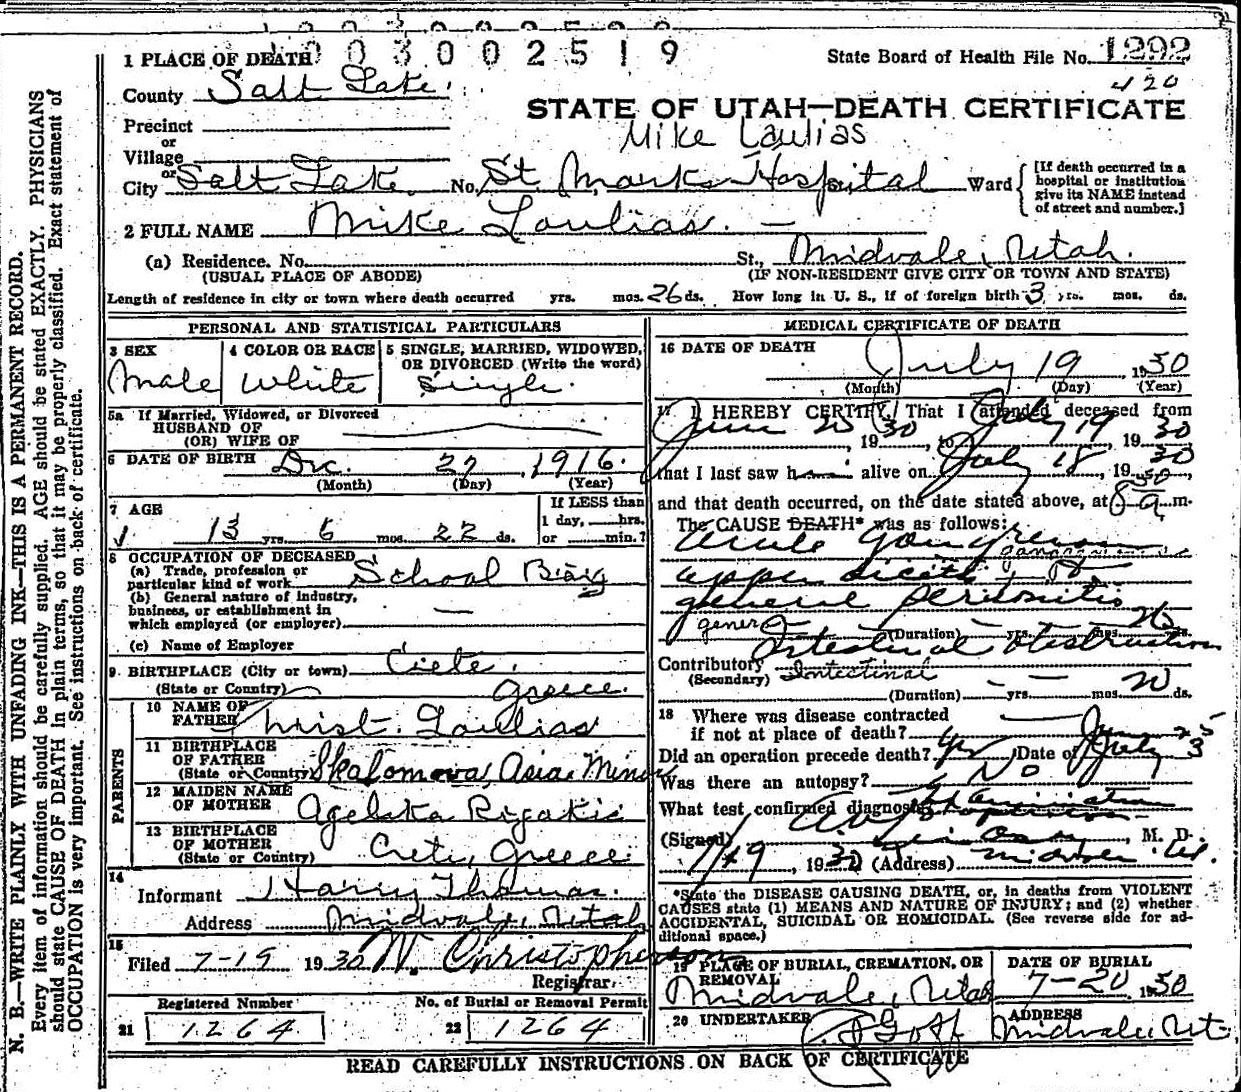 1 2 0 3 0 0 2 5 1 9
1 PLACE OF DEATH
State Board of Health File No. 1292
420
County Salt Lake
STATE OF UTAH—DEATH CERTIFICATE
Precinct
Mike Laulias
or
Village
or
City Salt Lake No. St Marks Hospital Ward
[If death occurred in a hospital or institution give its NAME instead of street and number.]
2 FULL NAME Mike Laulias
(a) Residence. No. St., Midvale, Utah.
(USUAL PLACE OF ABODE) (IF NON-RESIDENT GIVE CITY OR TOWN AND STATE)
Length of residence in city or town where death occurred yrs. mos. 26 ds. How long in U. S., if of foreign birth 3 yrs. mos. ds.
PERSONAL AND STATISTICAL PARTICULARS
3 SEX Male
4 COLOR OR RACE White
5 SINGLE, MARRIED, WIDOWED, OR DIVORCED (Write the word) Single
5a If Married, Widowed, or Divorced
HUSBAND OF
(OR) WIFE OF
6 DATE OF BIRTH Dec. 27, 1916.
(Month) (Day) (Year)
7 AGE
If LESS than
1 day, hrs.
or min.?
13 yrs. 6 mos. 22 ds.
8 OCCUPATION OF DECEASED
(a) Trade, profession or particular kind of work School Boy
(b) General nature of industry, business, or establishment in which employed (or employer)
(c) Name of Employer
9 BIRTHPLACE (City or town) Crete,
(State or Country) Greece.
PARENTS
10 NAME OF FATHER Christ. Laulias
11 BIRTHPLACE OF FATHER
(State or Country) Asia Minor
12 MAIDEN NAME OF MOTHER
13 BIRTHPLACE OF MOTHER
(State or Country) Crete, Greece
14
Informant Harry Thomas.
Address Midvale, Utah
15
Filed 7-19 1930 W. Christopherson
Registrar.
Registered Number
21 1264
No. of Burial or Removal Permit
22 1264
MEDICAL CERTIFICATE OF DEATH
16 DATE OF DEATH
July 19 1930
(Month) (Day) (Year)
17 I HEREBY CERTIFY, That I attended deceased from
June 25, 1930, to July 19, 1930
that I last saw h alive on July 18, 1930
and that death occurred, on the date stated above, at 8 a m.
The CAUSE DEATH* was as follows:
Acute Gangrenous
appendicitis
general peritonitis
gener
(Duration) yrs. mos. ds.
Intestinal obstruction
Contributory Intestinal
(Secondary)
(Duration) yrs. mos. ds.
18 Where was disease contracted
if not at place of death?
Did an operation precede death? Yes Date of
Was there an autopsy? No
What test confirmed diagnosis?
(Signed) M. D.
7/19, 1930 (Address) Midvale Ut.
*State the DISEASE CAUSING DEATH, or, in deaths from VIOLENT
CAUSES state (1) MEANS AND NATURE OF INJURY; and (2) whether
ACCIDENTAL, SUICIDAL OR HOMICIDAL. (See reverse side for additional space.)
19 PLACE OF BURIAL, CREMATION, OR REMOVAL
Midvale, Utah
DATE OF BURIAL
7-20 1930
20 UNDERTAKER Goff
ADDRESS
Midvale, Ut.
READ CAREFULLY INSTRUCTIONS ON BACK OF CERTIFICATE
N. B.—WRITE PLAINLY WITH UNFADING INK—THIS IS A PERMANENT RECORD.
Every item of information should be carefully supplied. AGE should be stated EXACTLY. PHYSICIANS
should state CAUSE OF DEATH in plain terms, so that it may be properly classified. Exact statement of
OCCUPATION is very important. See instructions on back of certificate.